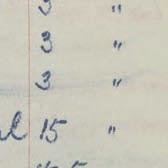 3 "
3 "
3 "
15 "